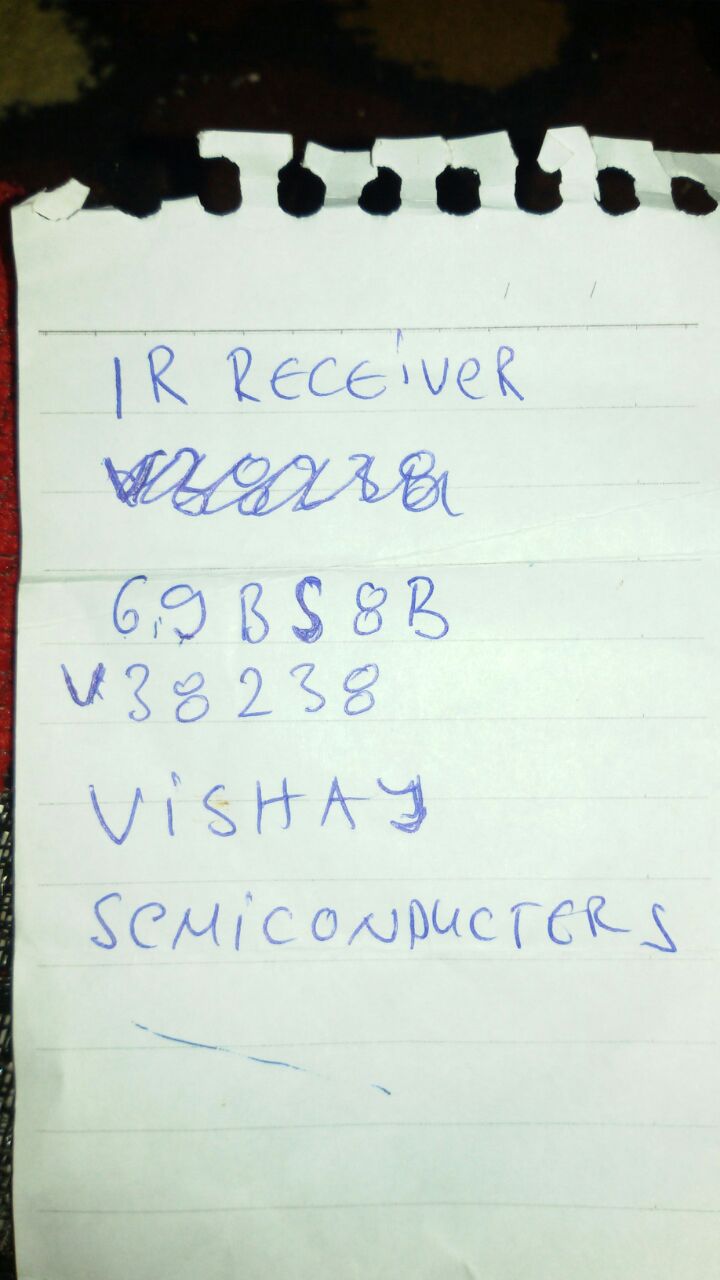 IR RECEiVeR
G.9BS8B
V38238
ViSHAY
SeMiCONDUCTERS